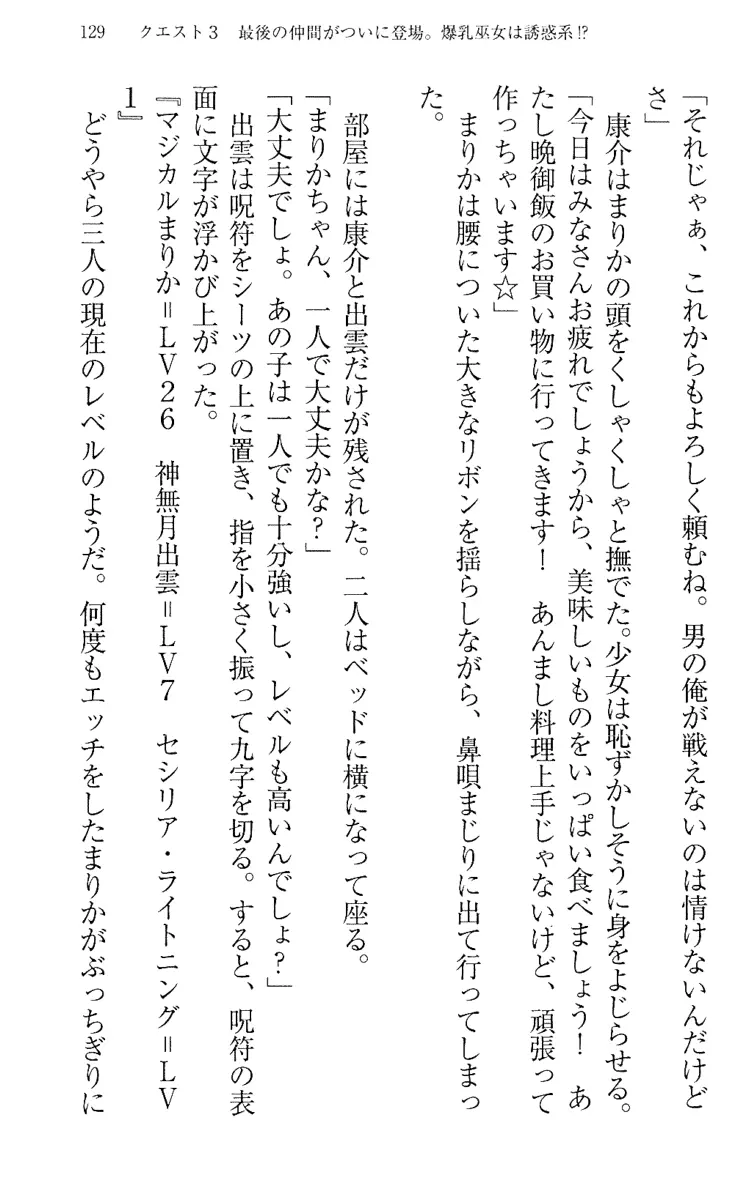 129　クエスト3　最後の仲間がついに登場。爆乳巫女は誘惑系!?
「それじゃぁ、これからもよろしく頼むね。男の俺が戦えないのは情けないんだけど
さ」
　康介はまりかの頭をくしゃくしゃと撫でた。少女は恥ずかしそうに身をよじらせる。
「今日はみなさんお疲れでしょうから、美味しいものをいっぱい食べましょう！　あ
たし晩御飯のお買い物に行ってきます！　あんまし料理上手じゃないけど、頑張って
作っちゃいます☆」
　まりかは腰についた大きなリボンを揺らしながら、鼻唄まじりに出て行ってしまっ
た。
　部屋には康介と出雲だけが残された。二人はベッドに横になって座る。
「まりかちゃん、一人で大丈夫かな？」
「大丈夫でしょ。あの子は一人でも十分強いし、レベルも高いんでしょ？」
　出雲は呪符をシーツの上に置き、指を小さく振って九字を切る。すると、呪符の表
面に文字が浮かび上がった。
『マジカルまりか＝ＬＶ２６　神無月出雲＝ＬＶ７　セシリア・ライトニング＝ＬＶ
１』
　どうやら三人の現在のレベルのようだ。何度もエッチをしたまりかがぶっちぎりに